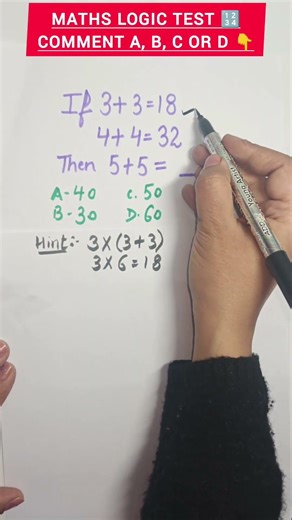 MATHS LOGIC TEST 🔢
COMMENT A, B, C OR D 👇
If 3+3=18
4+4=32
Then 5+5=_
A-40 C.50
B-30 D.60
Hint:- 3×(3+3)
3×6=18